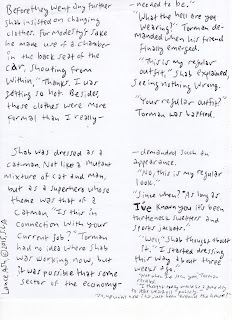 Before they went any further
Shab insisted on changing
clothes. For modesty's sake
he made use of a chamber
in the back seat of the
car, shouting from
within, "Thanks. I was
getting so hot. Besides,
those clothes were more
formal than I really—
—needed to be."
"What the hell are you
wearing?" Torman de-
manded when his friend
finally emerged.
"This is my regular
outfit," Shab explained,
seeing nothing wrong.
"Your regular outfit?"
Torman was baffled.
Shab was dressed as a
catman. Not like a mutant
mixture of cat and man,
but as a superhero whose
theme was that of a
catman. "Is this in
connection with your
current job?" Torman
had no idea where Shab
was working now, but
it was possible that some
sector of the economy—
—demanded such an
appearance.
"No, this is my regular
look."
"Since when? As long as
I've known you it's been
turtleneck sweaters and
sports jackets."
"Well," Shab thought about
it, "I started dressing
this way about three
weeks ago."